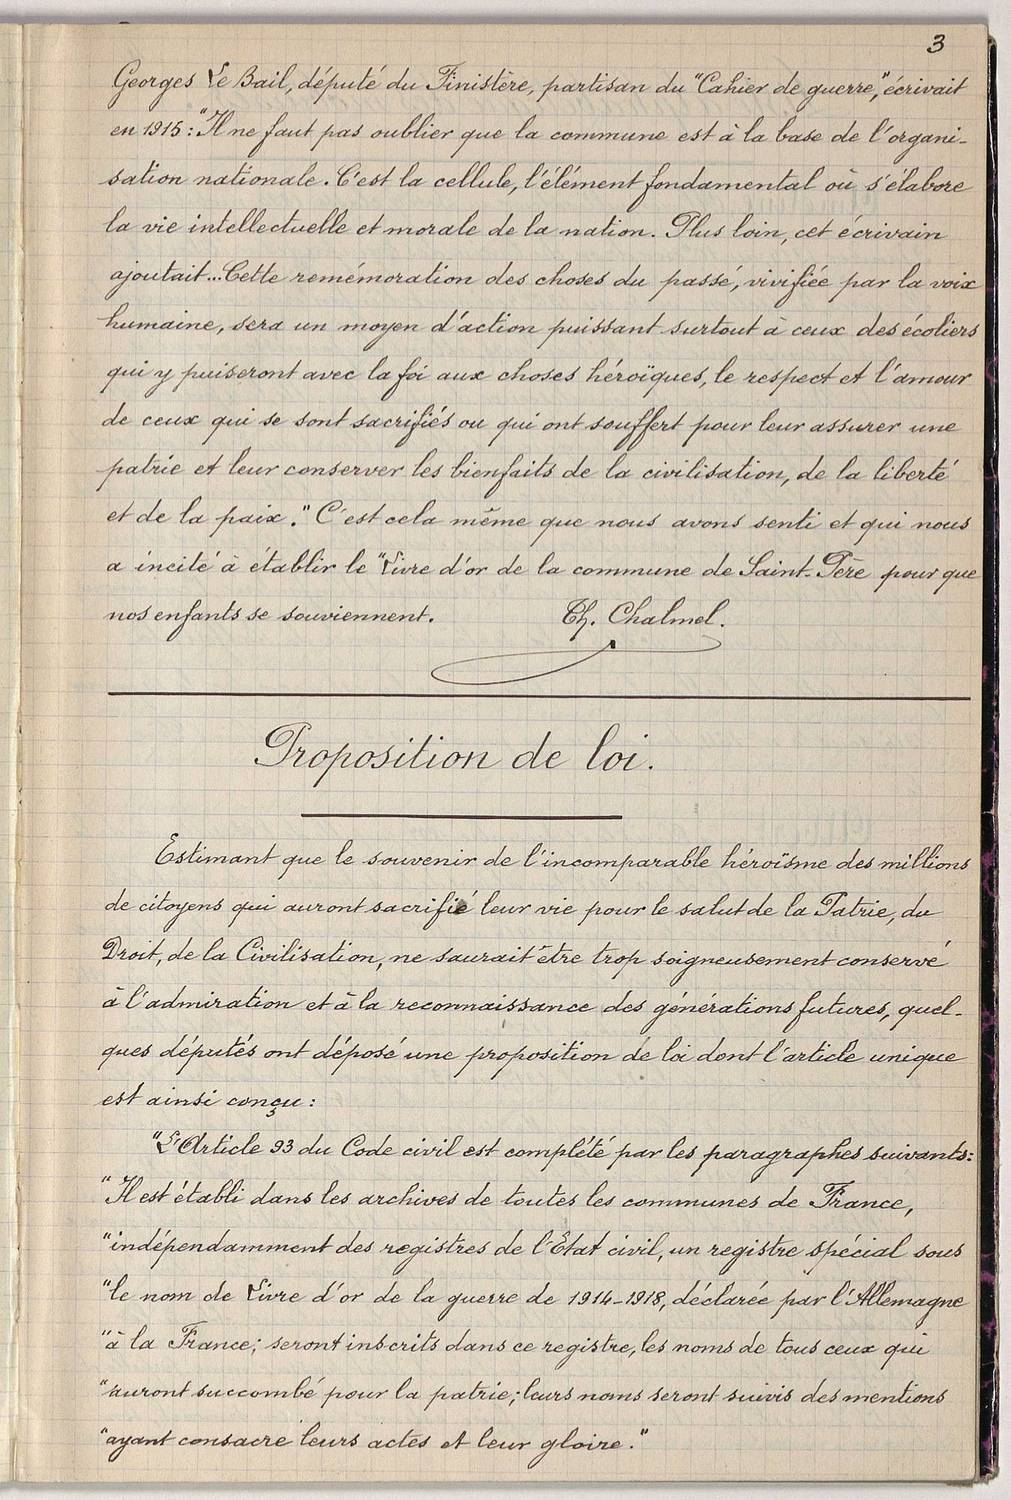 3
Georges Le Bail, député du Finistère, partisan du "Cahier de guerre," écrivait
en 1915: "Il ne faut pas oublier que la commune est à la base de l'organi-
sation nationale. C'est la cellule, l'élément fondamental où s'élabore
la vie intellectuelle et morale de la nation. Plus loin, cet écrivain
ajoutait... Cette remémoration des choses du passé, vivifiée par la voix
humaine, sera un moyen d'action puissant surtout à ceux des écoliers
qui y puiseront avec la foi aux choses héroïques, le respect et l'amour
de ceux qui se sont sacrifiés ou qui ont souffert pour leur assurer une
patrie et leur conserver les bienfaits de la civilisation, de la liberté
et de la paix." C'est cela même que nous avons senti et qui nous
a incité à établir le "Livre d'or de la commune de Saint-Père pour que
nos enfants se souviennent. Th. Chalmel.
Proposition de loi.
Estimant que le souvenir de l'incomparable héroïsme des millions
de citoyens qui auront sacrifié leur vie pour le salut de la Patrie, du
Droit, de la Civilisation, ne saurait être trop soigneusement conservé
à l'admiration et à la reconnaissance des générations futures, quel-
ques députés ont déposé une proposition de loi dont l'article unique
est ainsi conçu:
"L'Article 93 du Code civil est complété par les paragraphes suivants:
"Il est établi dans les archives de toutes les communes de France,
"indépendamment des registres de l'Etat civil, un registre spécial sous
"le nom de Livre d'or de la guerre de 1914-1918, déclarée par l'Allemagne
"à la France; seront inscrits dans ce registre, les noms de tous ceux qui
"auront succombé pour la patrie; leurs noms seront suivis des mentions
"ayant consacré leurs actes et leur gloire."